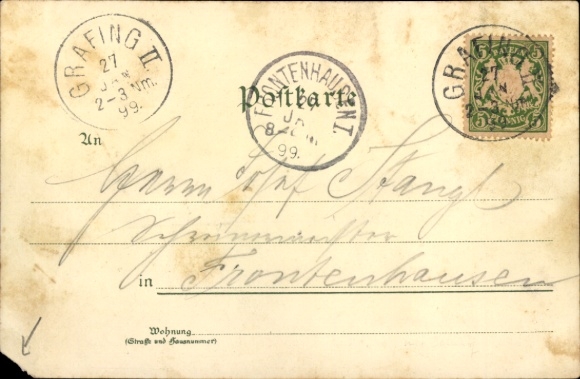 GRAFING II.
27
JAN
2-3 Nm.
99.
FRONTENHAUSEN
JA
99.
GRAFING
27
BAYERN
5 5
5 5
PFENNIG
Postkarte
An
Herrn Josef Stangl
Schreinermeister
in Frontenhausen
Wohnung
(Straße und Hausnummer)